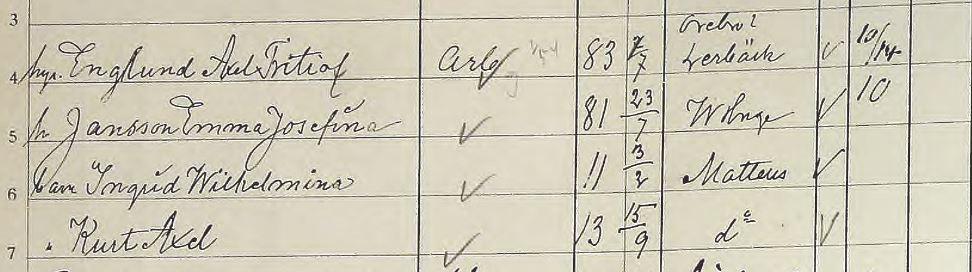 3
4 hyr. Englund Axel Fritiof Arb 83 7/7 Örebro? Lerbäck ✓ 10/14
5 h Jansson Emma Josefina ✓ 81 23/7 ✓ 10
6 barn Ingrid Wilhelmina ✓ 11 3/2 Matteus ✓
7 " Kurt Axel ✓ 13 15/9 d:o ✓